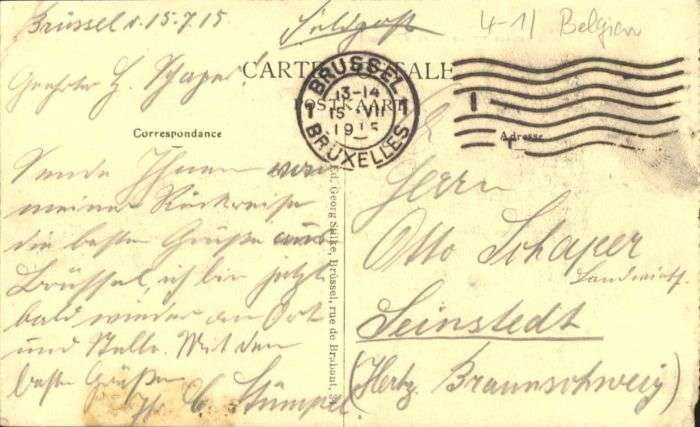 Brüssel d. 15.7.15
Feldpost
4-1/ Belgien
Geehrter H. Schaper!
CARTE POSTALE
POSTKAARTE
BRÜSSEL
13-14
1 15 VII 1
1915
BRUXELLES
Correspondance
Adresse
Sende Ihnen von
meiner Rückreise
die besten Grüße aus
Brüssel, ich bin jetzt
bald wieder an Ort
und Stelle. Mit den
besten Grüßen
Ihr C. Stümpel
Ed. Georg Stilke, Brüssel, rue de Brabant,
Herrn
Otto Schaper
Landwirth.
Seinstedt
(Herz. Braunschweig)